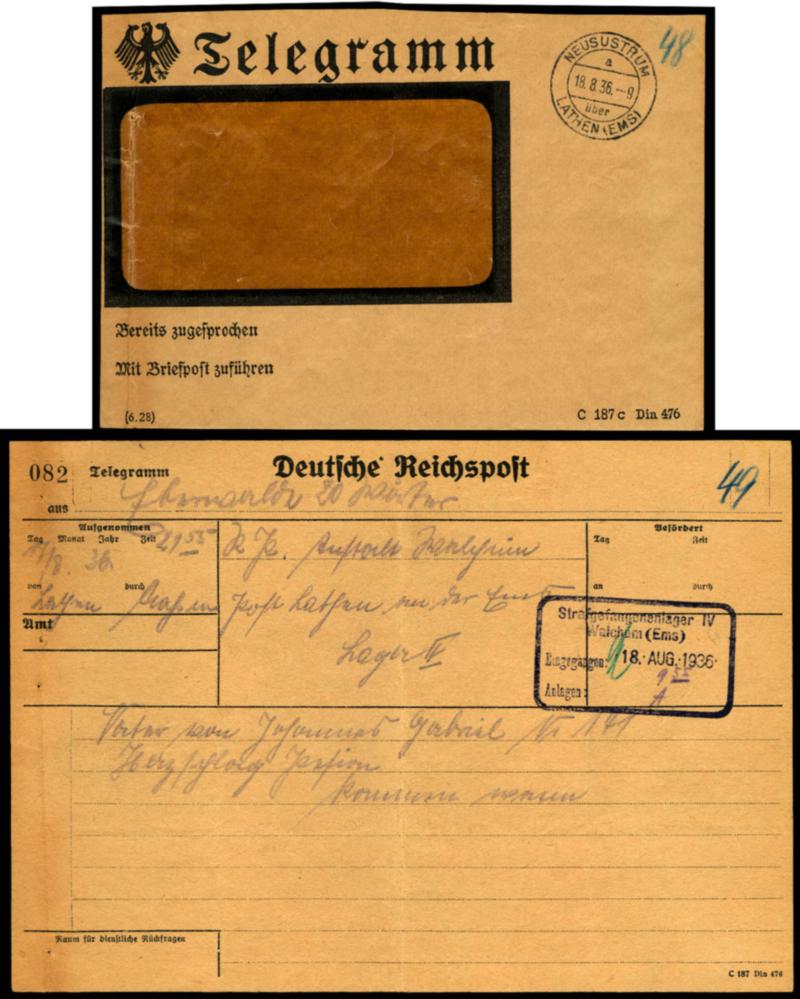 Telegramm
48
NEUSUSTRUM
a
18.8.36.--9
über
LATHEN (EMS)
Bereits zugesprochen
Mit Briefpost zuführen
(6.28)
C 187 c Din 476
082 Telegramm
Deutsche Reichspost
49
aus Eberswalde 20 Wörter
Aufgenommen
Tag Monat Jahr Zeit
/8. 36. 21 55
von durch
Lathen
Amt
Anstalt Walchum
Post Lathen an der Ems
Lager IV
Befördert
Tag Zeit
an durch
Strafgefangenenlager IV
Walchum (Ems)
Eingegangen: 18. AUG. 1936
9 55
Anlagen: A
Vater von Johannes Gabriel Nr 141
Herzschlag
kommen wann
Raum für dienstliche Rückfragen
C 187 Din 476